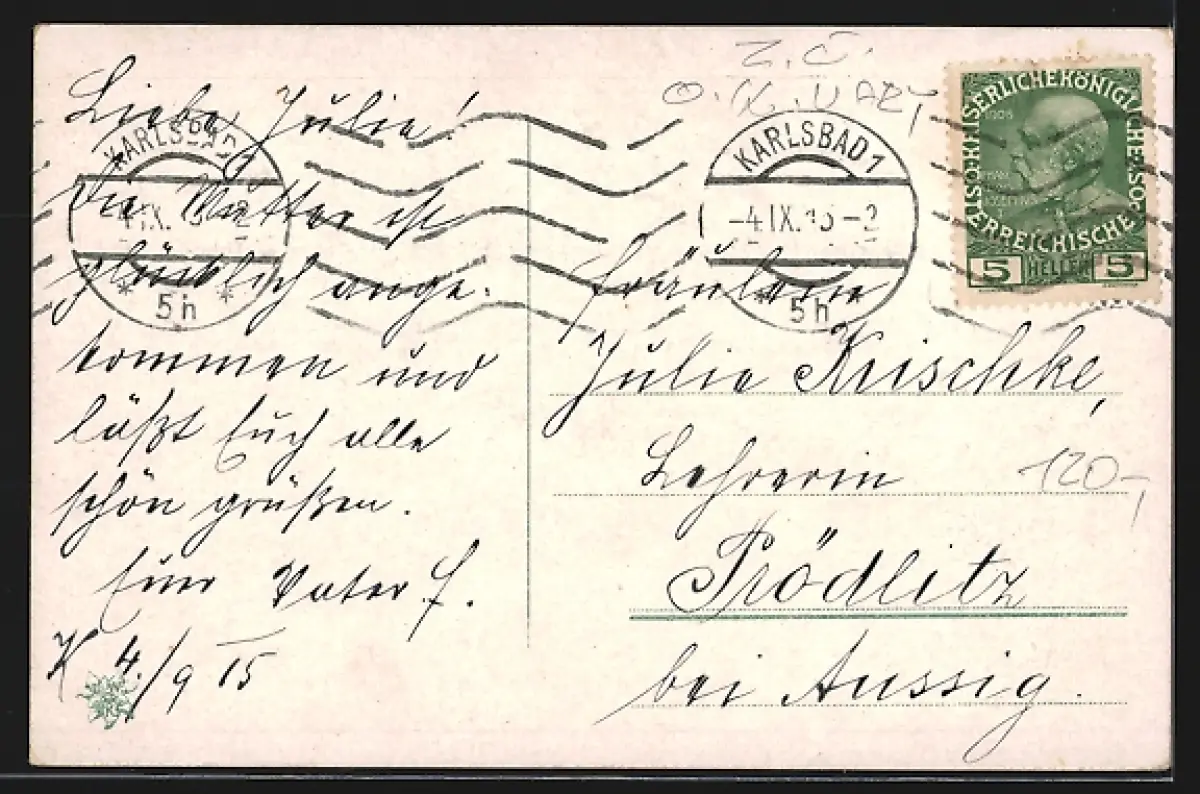 Liebe Julie!
Die Mutter ist
glücklich ange-
kommen und
läßt Euch alle
schön grüßen.
Euer Vater J.
K 4./9 15
KARLSBAD
5h
KARLSBAD 1
-4.IX.15-2
5h
KAISERLICHE KÖNIGLICHE
ÖSTERREICHISCHE
1908
5 HELLER 5
Fräulein
Julie Krischke,
Lehrerin
120,-
Prödlitz
bei Aussig.